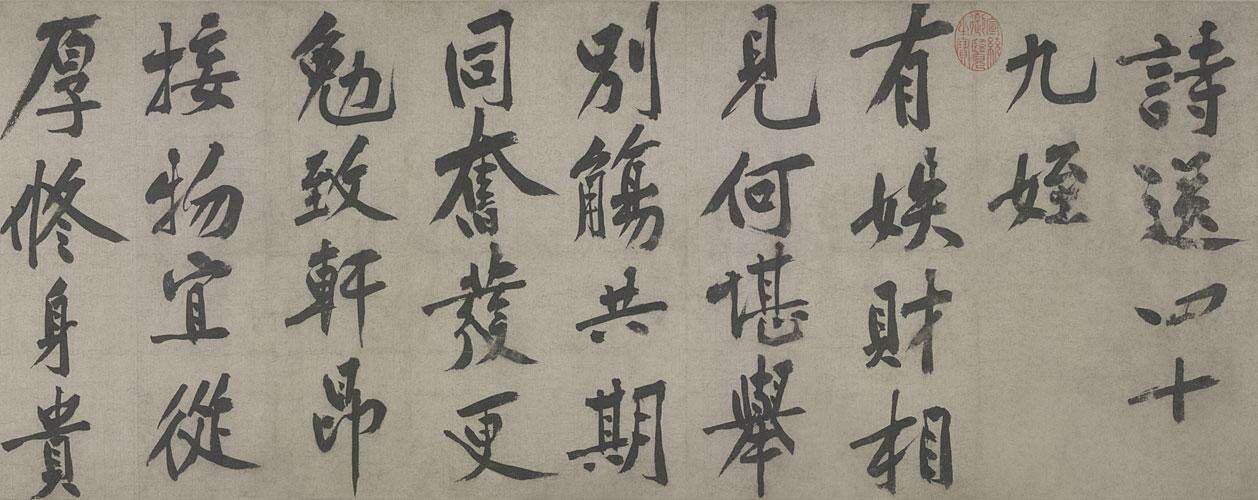 詩送四十
九姪
有娭財相
見何堪舉
別觴共期
同奮發更
勉致軒昂
接物宜從
厚修身貴
宣統御覽之寶